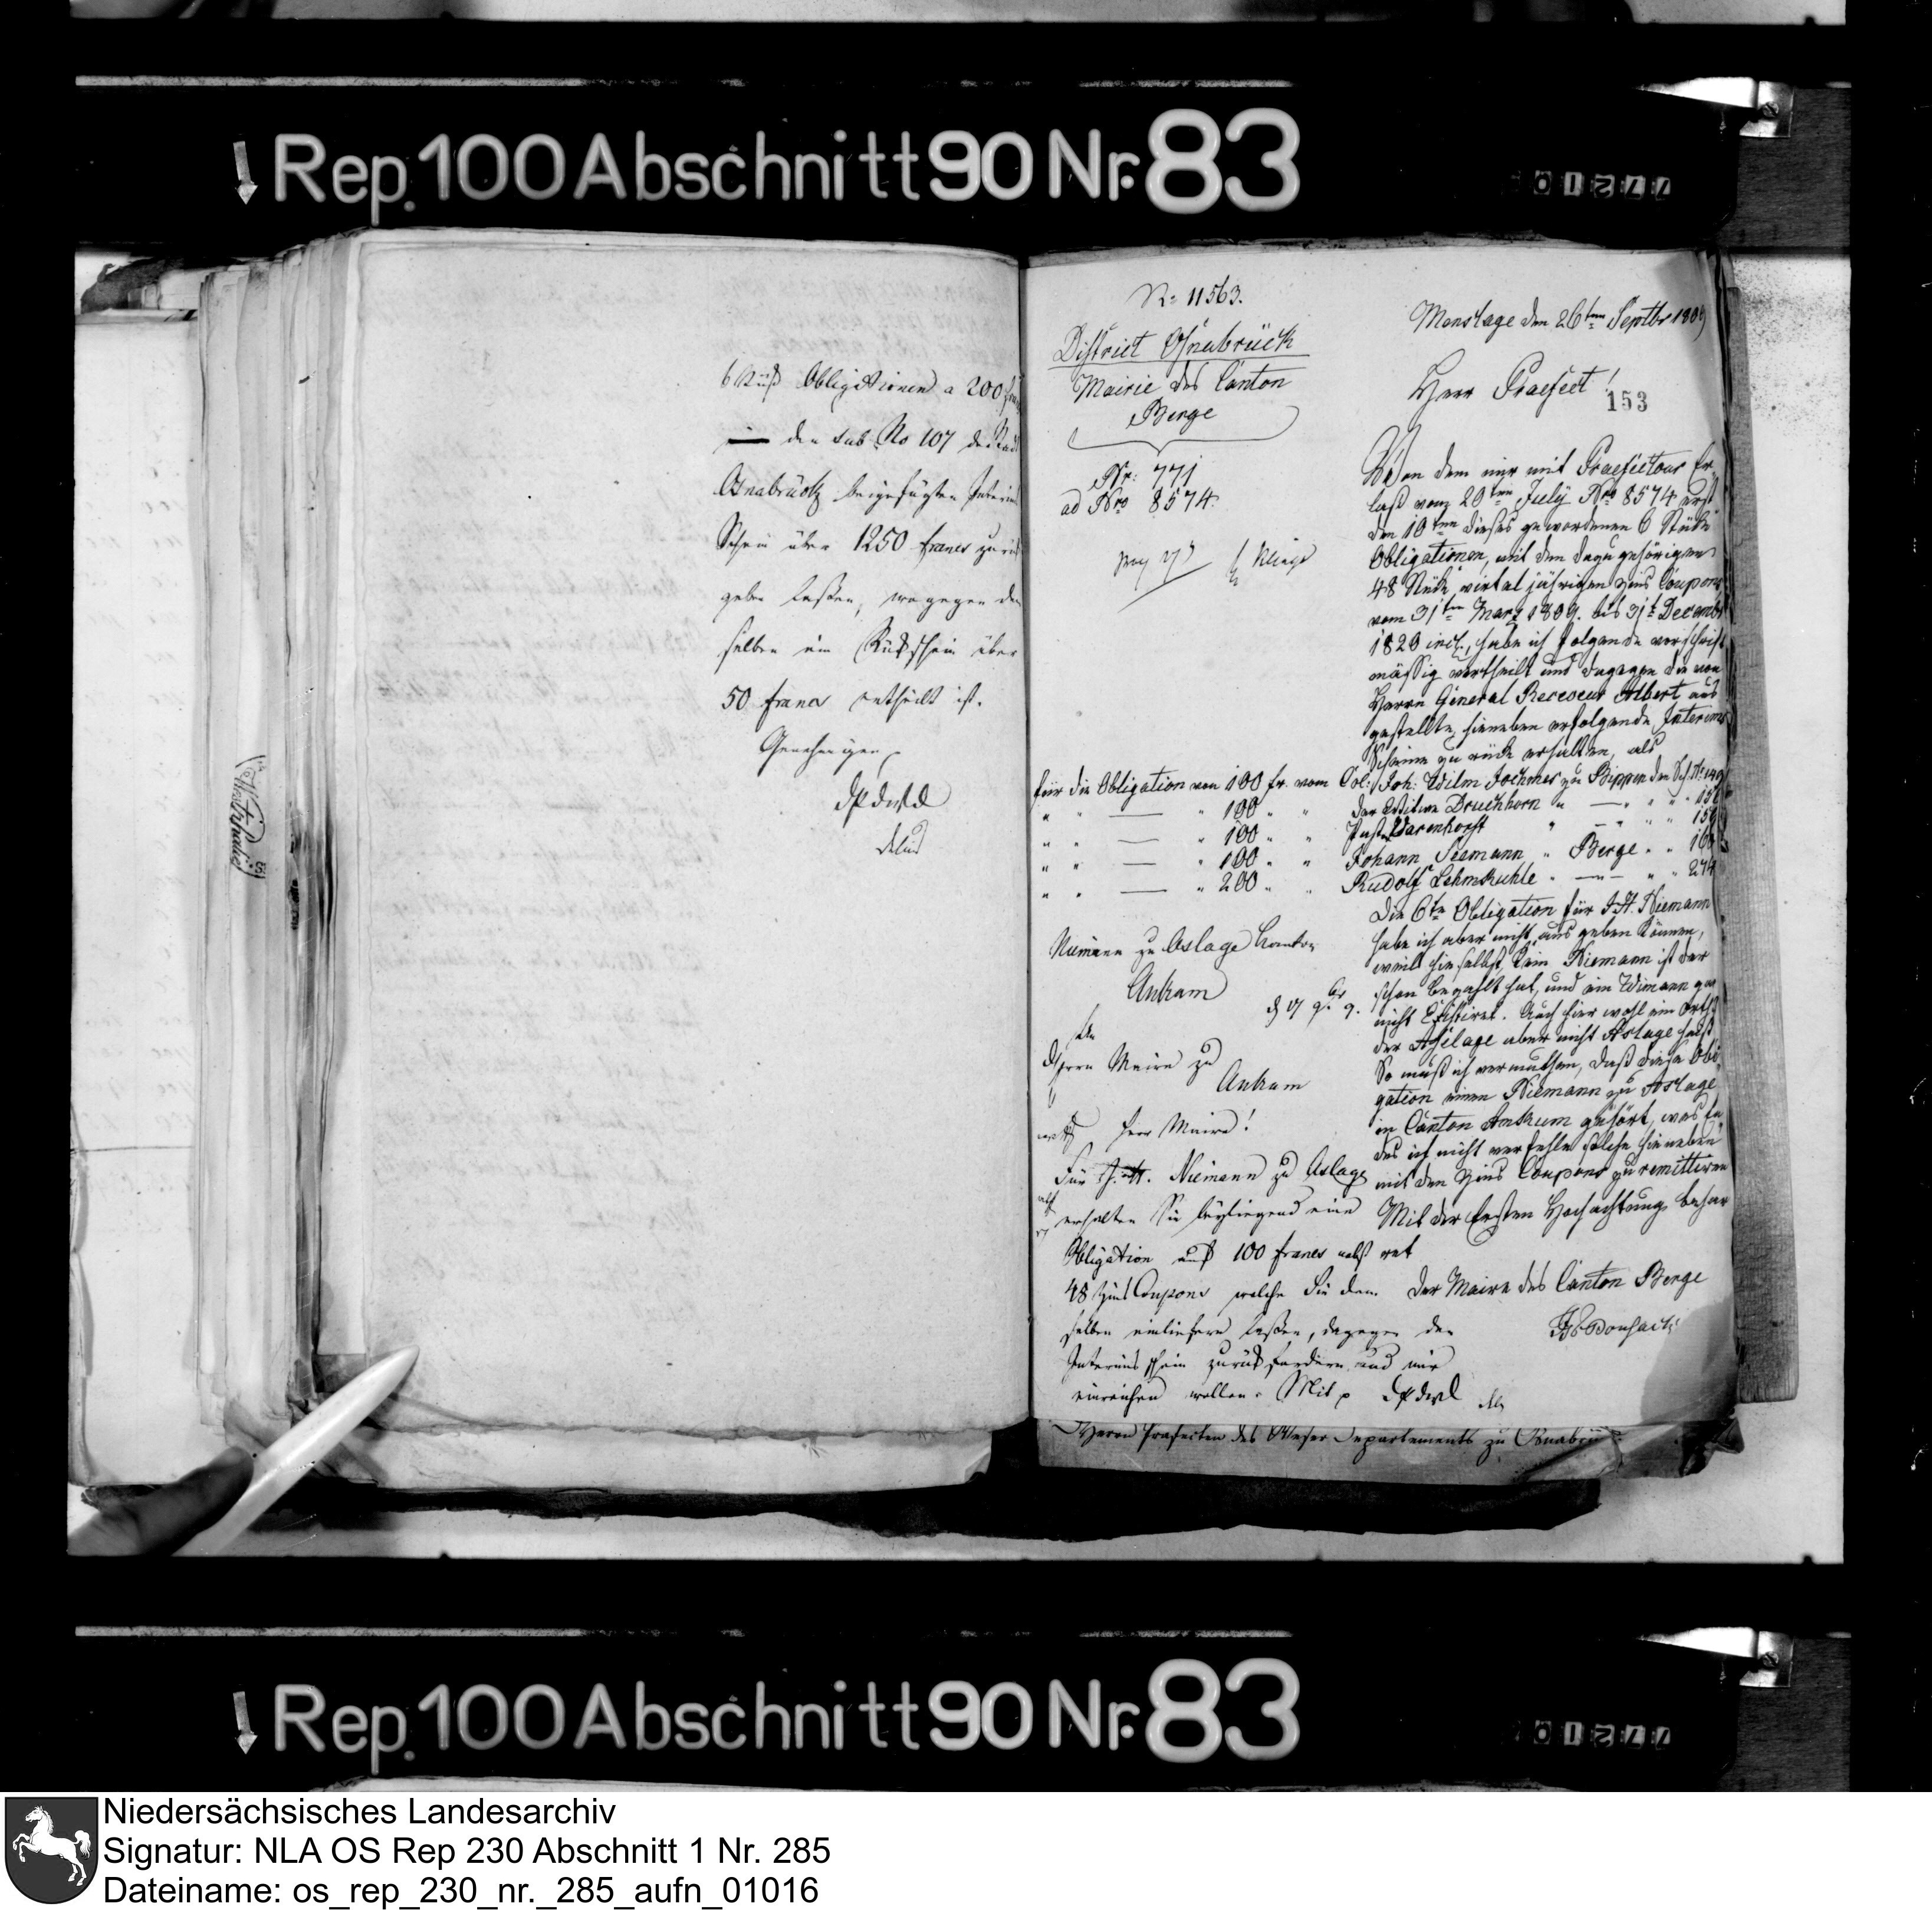 Rep. 100 Abschnitt 90 Nr. 83
6 Stück Obligationen a 200
den sub No 107 der Stadt
Osnabrück beigefügten Interims
Schein über 1250 francs zurück
geben laßen, wogegen den
selben ein Rückschein über
50 francs ertheilt ist.
Genehmigen
No 11563.
District Osnabrück
Mairie des Canton
Berge
Nr: 771
ad Nro 8574.
Menslage den 26ten Septbr 1809
Herr Praefect!
153
Von dem mir mit Praefectour Er
laß vom 20ten July Nro 8574 erst
den 10ten dieses gewordenen 6 Stücke
Obligationen, mit den dazu gehörigen
48 Stück viertel jährigen Zins Coupons
vom 31ten Marz 1809. bis 31t Decembr
1820 incl., habe ich folgende vorschrift
mässig vertheilt und dagegen die von
Herrn General Receveur Albert aus
gestellte, hieneben erfolgende Interims
Scheine zu rück erhalten, als
für die Obligation von 100 fr. vom Col: Joh: Wilm Jochmer zu Bippen den Sch. Nr: 149
" " — " 100 " " der Witwe Druchhorn " — " " "
" " — " 100 " " Warenhorst " — " "
" " — " 100 " " Johann Seemann " Berge " "
" " — " 200 " " Rudolf Lehmkuhle " — " " " 274
Die 6te Obligation für J.H. Niemann
habe ich aber nicht aus geben können,
weil hieselbst kein Niemann ist der
schon bezahlt hat, und ein Wimann gar
nicht Existiret. Auch hier wohl ein Ort
der Aselage aber nicht Aslage heißt
So muß ich vermuthen, daß diese Obli
gation einen Niemann zu Aslage
in Canton Ankum gehört, wes En
des ich nicht verfehle solche hieneben
mit den Zins Coupons zu remittiren
Mit der Ersten Hochachtung behar
ret
der Maire des Canton Berge
Niemann zu Aslage Canton
Ankum
Herrn Maire zu
Ankum
Herr Maire!
Für J. H. Niemann zu Aslage
erhalten Sie beyliegend eine
Obligation auf 100 francs nebst
48 Zins Coupons welche Sie dem
selben einliefern laßen, dagegen den
Interims schein zurück fordern und mir
einreichen wollen. Mit p
Herrn Praefecten des Weser Departements zu Osnabrück
Rep. 100 Abschnitt 90 Nr. 83
Niedersächsisches Landesarchiv
Signatur: NLA OS Rep 230 Abschnitt 1 Nr. 285
Dateiname: os_rep_230_nr._285_aufn_01016